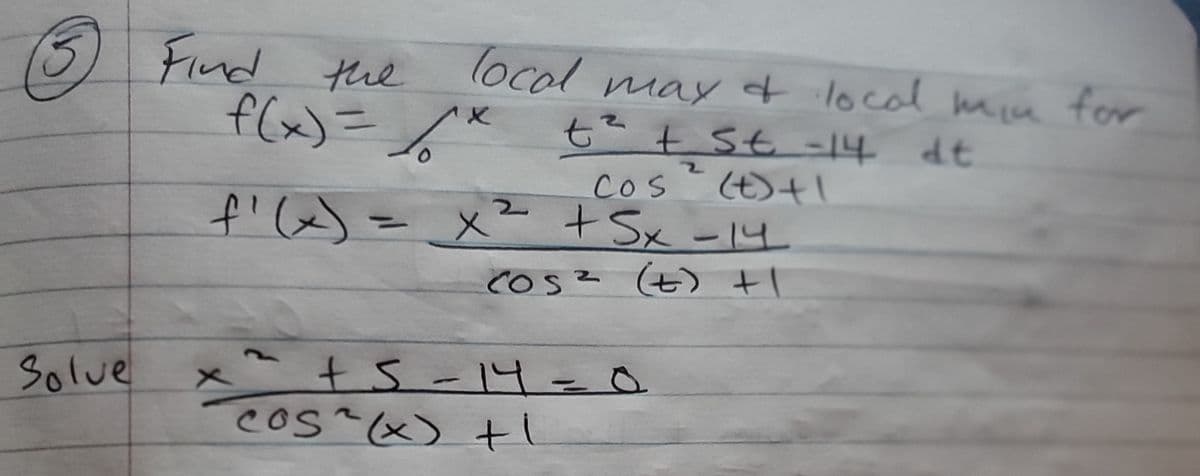 ⑤ Find the local max & local min for
f(x) = ∫₀ˣ (t² + 5t - 14)/(cos²(t)+1) dt
f'(x) = (x² + 5x - 14)/(cos²(t) + 1)
Solve (x² + 5 - 14)/(cos²(x) + 1) = 0